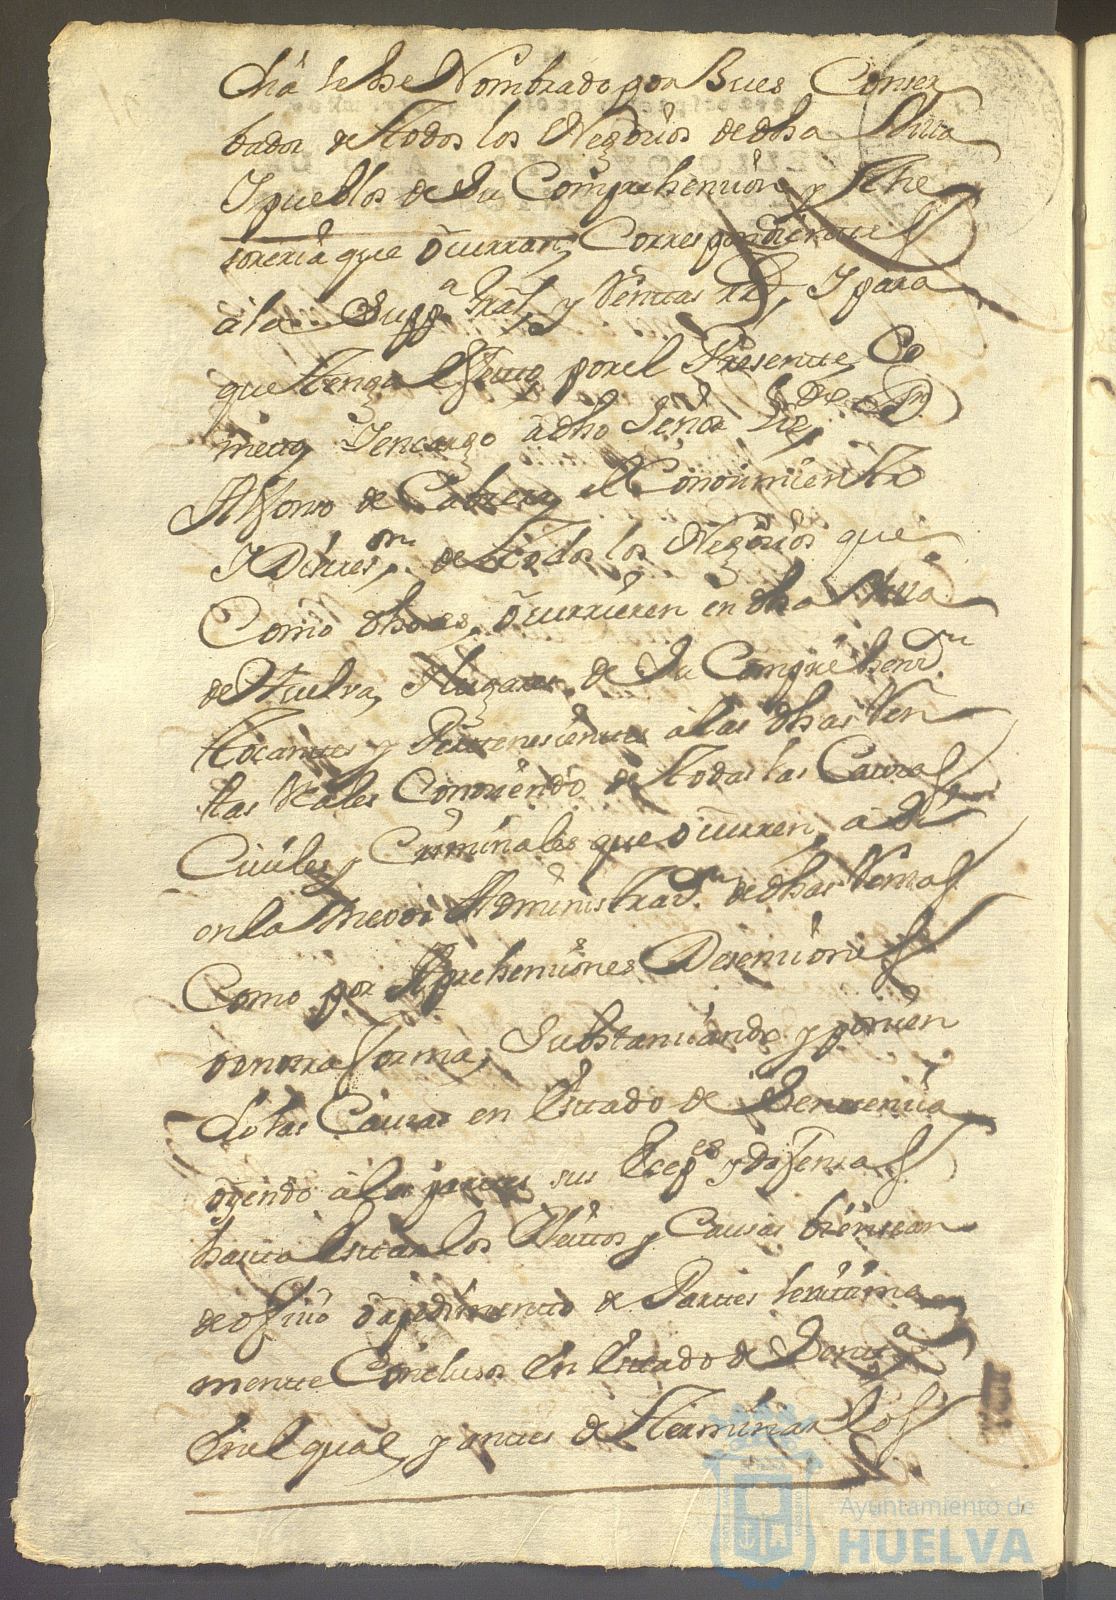 cha le he Nombrado por Juez Conser
bador de ttodos los Negocios de dha Villa
Y pueblos de Su Comprehención y The
sorería que ôcurran, Correspondientes
â la Supp.ª Gral, y Renttas R.s, Y para
que ttenga efectto por el Presentte Co
metto Y encargo â dho Señor Liz.do Dn
Alfonso de Cabrera el Conocimientto
Y Direcs.on de ttodos los Negocios que
Como dho es, ôcurrieren en dha Villa
de Huelva, Y lugares de Su Comprehens.on
ttocanttes y Pertteneciénttes â las dhas Ren
ttas Rales Conociendo de ttodas las Causas
Civiles y Criminales que ôcurren, a Si
en la Mejor Administraz.on de dhas Renttas
Como por Aprehenciones Detenciónes
ôen ôtra forma, Substanciando y ponien
dolas Causas en Esttado de Senttencia
oyendo â las parttes sus Ecep.es y defensas
hastta esttar los Pleittos y Causas bien sean
de oficio ô apedimentto de Parttes lexitima
mentte Conclusos en Esttado de Sentt.ª
En el qual, y anttes de tterminarlos
Ayuntamiento de
HUELVA